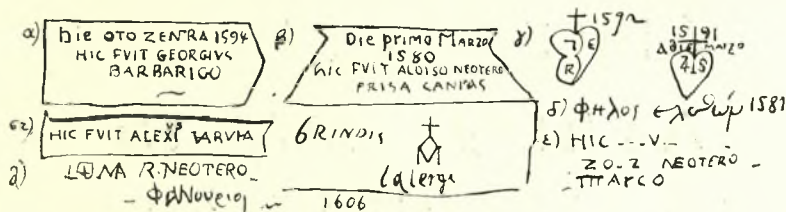 α) hie OTO ZENRA 1594
HIC FVIT GEORGIVS
BARBARIGO
β) Die primo MARZO
1580
hic FVIT ALOISO NEOTERO
FRISA CANPAS
γ) 1592
R E
15 91
MARZO
δ) ΦΗλος 1581
ε) HIC ... V..
ZO.Z NEOTERO
MARCO
ςz) HIC FVIT ALEXIVS VARVHA
GRINDIS
Calergi
1606
R. NEOTERO
Φανουριος